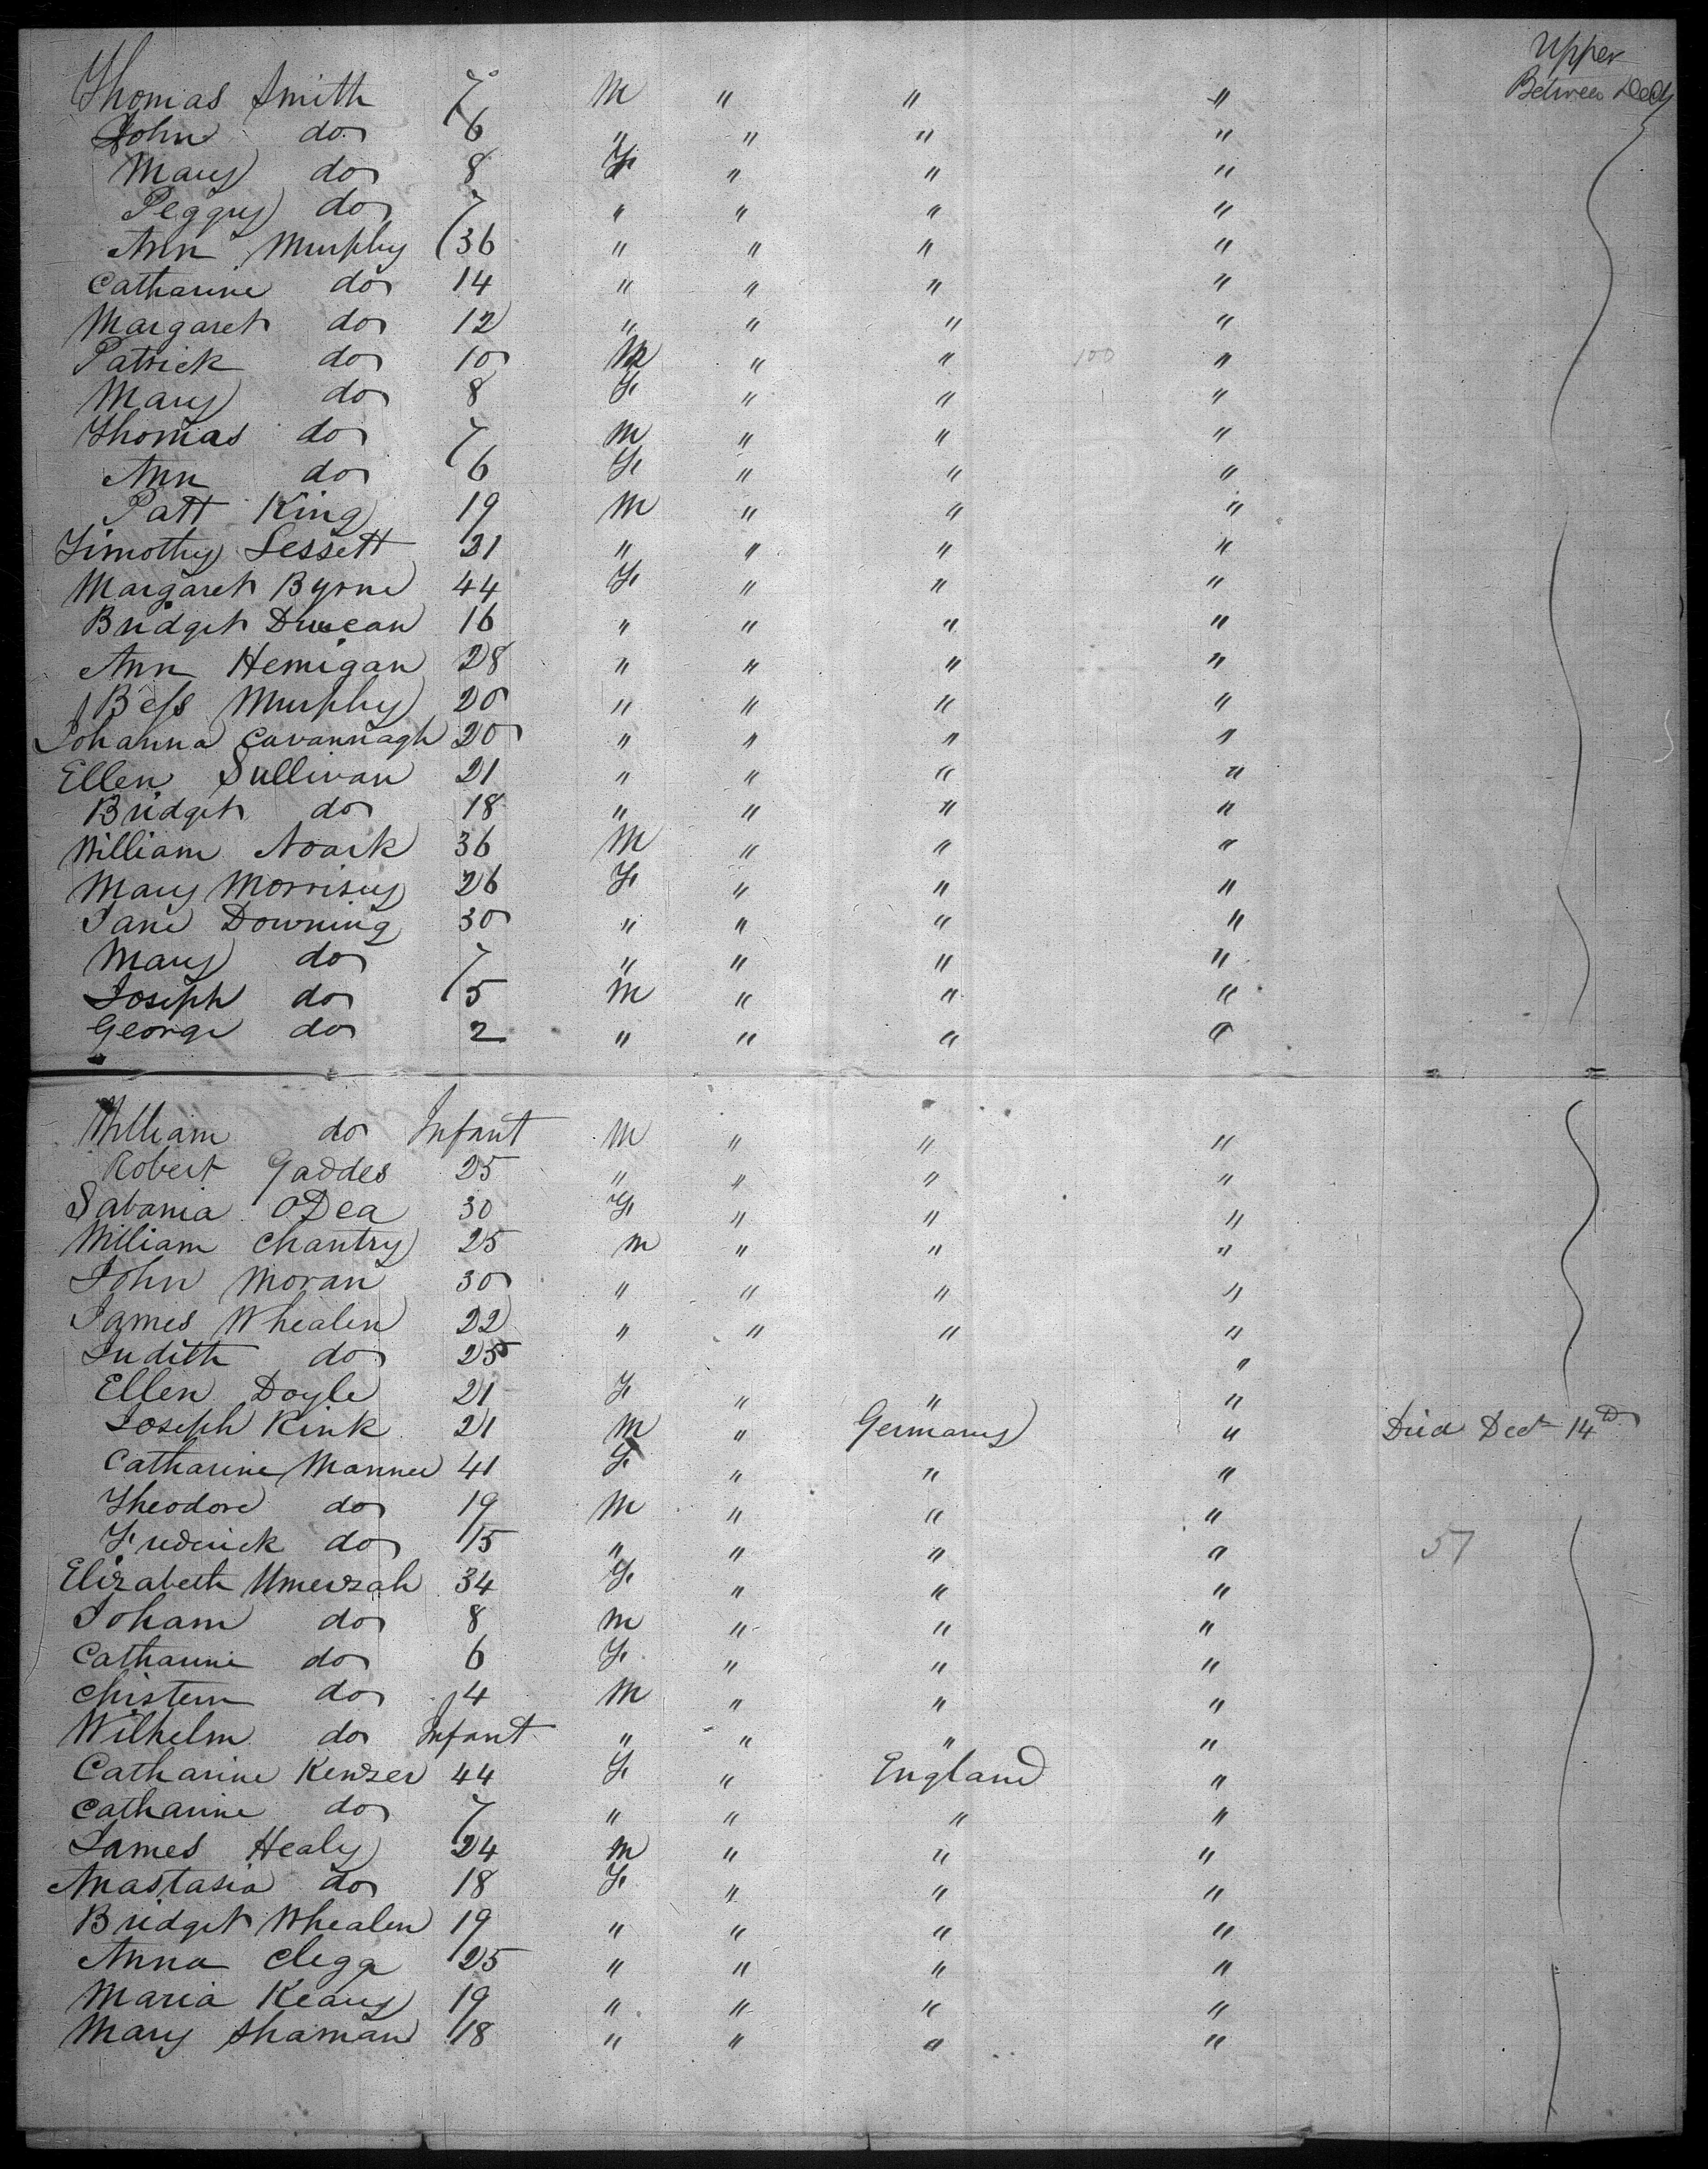 Upper
Between Deck
Thomas Smith 7 M " " "
John do 6 " " " "
Mary do 8 F " " "
Peggy do 7 " " " "
Ann Murphy 36 " " " "
Catharine do 14 " " " "
Margaret do 12 " " " "
Patrick do 10 M " " 100 "
Mary do 8 F " " "
Thomas do 7 M " " "
Ann do 6 F " " "
Patt King 19 M " " "
Timothy Lessett 21 " " " "
Margaret Byrne 44 F " " "
Bridget Duncan 16 " " " "
Ann Hemigan 28 " " " "
Bess Murphy 20 " " " "
Johanna Cavannagh 20 " " " "
Ellen Sullivan 21 " " " "
Bridget do 18 " " " "
William Noark 36 M " " "
Mary Morrisey 26 F " " "
Jane Downing 30 " " " "
Mary do 7 " " " "
Joseph do 5 M " " "
George do 2 " " " "
William do Infant M " " "
Robert Gaddes 25 " " " "
Sabania ODea 30 F " " "
William Chantry 25 M " " "
John Moran 30 " " " "
James Whealen 22 " " " "
Judith do 25 "
Ellen Doyle 21 F " " "
Joseph Kink 21 M " Germany " Died Dec 14th
Catharine Manner 41 F " " "
Theodore do 19 M " " "
Frederick do 15 " " " " 57
Elizabeth 34 F " " "
Joham do 8 M " " "
Catharine do 6 F " " "
Christern do 4 M " " "
Wilhelm do Infant " " " "
Catharine Kenzer 44 F " England "
Catharine do 7 " " " "
James Healy 24 M " " "
Anastasia do 18 F " " "
Bridget Whealen 19 " " " "
Anna Clegg 25 " " " "
Maria Keary 19 " " " "
Mary Shaman 18 " " " "